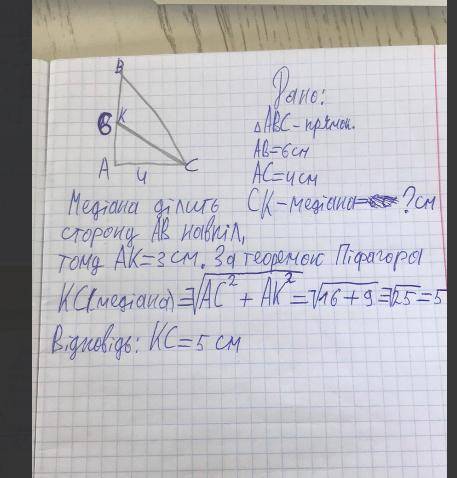 B
6 K
A 4 C
Дано:
△ABC - прямок.
AB=6см
AC=4см
CK-медіана= ? см
Медіана ділить
сторону AB навпіл,
тому AK=3 см. За теоремою Піфагора
KC(медіана)=√AC² + AK² = √16+9 = √25 = 5
Відповідь: KC=5 см